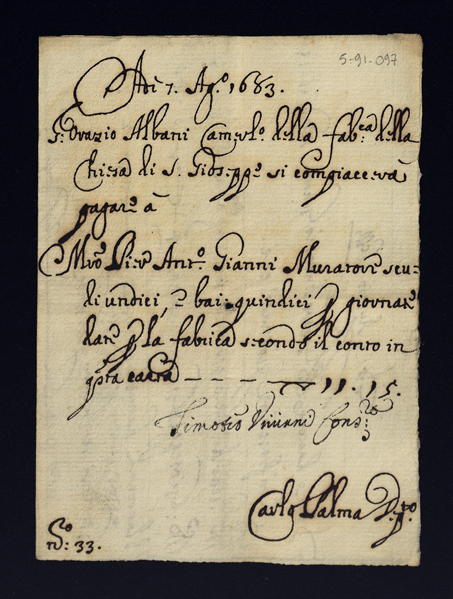 5-91-097
Adì 7. Ag.º 1683.
S.r Orazio Albani Camerl.º della fab.ca della
Chiesa di S. Gios.ppe si compiacerà
pagare à
Mro Pier Ant.º Gianni Muratore scu=
di undici, e bai: quindici p giornate
date p la fabrica secondo il conto in
qsta carta – – – – 11. 15.
Timoteo Viviani Cons.re
Carlo Palma D.pto
Nº: 33.